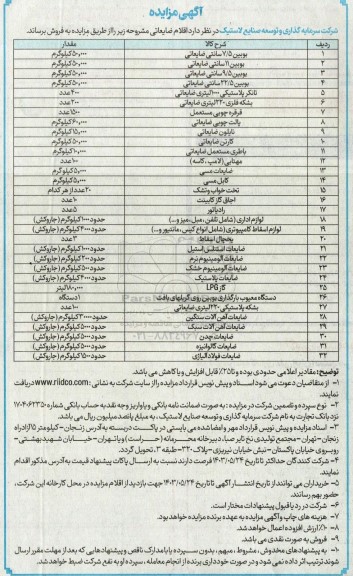 آگهی مزایده
شرکت سرمایه گذاری و توسعه صنایع لاستیک در نظر دارد اقلام ضایعاتی مشروحه زیر را از طریق مزایده به فروش برساند.
ردیف شرح کالا مقدار
۱ بوبین ۷/۵ سانتی ضایعاتی ۵۰,۰۰۰ کیلوگرم
۲ بوبین ۱۱ سانتی ضایعاتی ۵۰,۰۰۰ کیلوگرم
۳ بوبین ۹/۵ سانتی ضایعاتی ۵۰,۰۰۰ کیلوگرم
۴ بوبین ۳۲/۵ سانتی ضایعاتی کیلوگرم
۵ تانکر پلاستیکی ۱۰۰۰ لیتری ضایعاتی ۴۰۰ عدد
۶ بشکه فلزی ۲۲۰ لیتری ضایعاتی ۲۰۰ عدد
۷ قرقره چوبی مستعمل ۱۵۰۰ عدد
۸ پالت چوبی ضایعاتی ۶۰,۰۰۰ کیلوگرم
۹ نایلون ضایعاتی ۱۵,۰۰۰ کیلوگرم
۱۰ کارتن ضایعاتی کیلوگرم
۱۱ باطری مستعمل ضایعاتی ۱۰,۰۰۰ کیلوگرم
۱۲ مهتابی (لامپ، کاسه) ۱۰۰ عدد
۱۳ ضایعات مسی ۵,۰۰۰ کیلوگرم
۱۴ کابل مسی ۵,۰۰۰ کیلوگرم
۱۵ تخت خواب و تشک ۲۰ عدد از هر کدام
۱۶ اجاق گاز کابینت ۱۰ عدد
۱۷ رادیاتور ۵ عدد
۱۸ لوازم اداری (شامل تلفن، مبل، میز و...) حدود ۱۰۰۰ کیلوگرم (جاروکش)
۱۹ لوازم اسقاط کامپیوتری (شامل انواع کیس، مانیتور و...) حدود ۴۰۰۰ کیلوگرم (جاروکش)
۲۰ یخچال اسقاط ۳ عدد
۲۱ ضایعات استنلس استیل حدود کیلوگرم (جاروکش)
۲۲ ضایعات آلومینیوم نرم حدود کیلوگرم (جاروکش)
۲۳ ضایعات آلومینیوم خشک حدود کیلوگرم (جاروکش)
۲۴ ضایعات پلاستیک حدود کیلوگرم (جاروکش)
۲۵ گاز LPG لیتر
۲۶ دستگاه معیوب بارگذاری بوبین روی گریلهای بافت ۱ دستگاه
۲۷ بشکه پلاستیکی ۲۲۰ لیتری ضایعاتی ۱۰۰ عدد
۲۸ ضایعات آهن آلات سنگین حدود کیلوگرم (جاروکش)
۲۹ ضایعات آهن آلات سبک حدود کیلوگرم (جاروکش)
۳۰ ضایعات چدن حدود ۵۰۰۰ کیلوگرم (جاروکش)
۳۱ ضایعات گالوانیزه حدود ۵۰۰۰ کیلوگرم (جاروکش)
۳۲ ضایعات فولاد آلیاژی حدود کیلوگرم (جاروکش)
توضیح: مقادیر اعلامی حدودی بوده و تا ۲۵٪ قابل افزایش و یا کاهش می باشد.
۱- از متقاضیان دعوت می شود اسناد و پیش نویس قرارداد مزایده را از سایت شرکت به نشانی: www.riidco.com دریافت
نمایند.
۲- نوع سپرده و تضمین شرکت در مزایده: به صورت ضمانت نامه بانکی و یا واریز وجه نقد به حساب بانکی شماره
نزد بانک تجارت به نام شرکت سرمایه گذاری و توسعه صنایع لاستیک، به مبلغ پانصد میلیون ریال می باشد.
۳- اسناد مزایده و پیش نویس قرارداد مهر و امضا شده می بایستی در پاکت دربسته به آدرس زنجان - کیلومتر ۱۵ آزادراه
زنجان - تهران - مجتمع تولیدی نخ تایر صبا، دبیرخانه محرمانه (حراست) و یا تهران - خیابان شهید بهشتی -
روبروی خیابان پاکستان - نبش خیابان نیریزی - پلاک ۳۲۰ - طبقه ۳، تحویل گردد.
۴- شرکت کنندگان حداکثر تا تاریخ ۱۴۰۳/۰۵/۲۴ فرصت دارند نسبت به ارسال پاکات پیشنهاد قیمت به آدرس مذکور اقدام
نمایند.
۵- خریداران می توانند از تاریخ انتشار آگهی تا تاریخ ۱۴۰۳/۰۵/۲۴ جهت بازدید از اقلام مزایده در محل کارخانه این شرکت،
حضور بهم رسانند.
۶- شرکت در رد یا قبول پیشنهادات مختار است.
۷- هزینه های چاپ و آگهی مزایده به عهده برنده مزایده خواهد بود.
۸- ۱۰٪ ارزش افزوده اعمال خواهد شد.
۹- فروش به صورت نقدی می باشد.
۱۰- به پیشنهادهای مخدوش، مشروط، مبهم، بدون سپرده یا با مدارک ناقص و پیشنهاد هایی که بعد از مهلت مقرر ارسال
شوند ترتیب اثر داده نمی شود و در صورت خودداری برنده از انجام معامله، سپرده او به نفع شرکت ضبط خواهد شد.